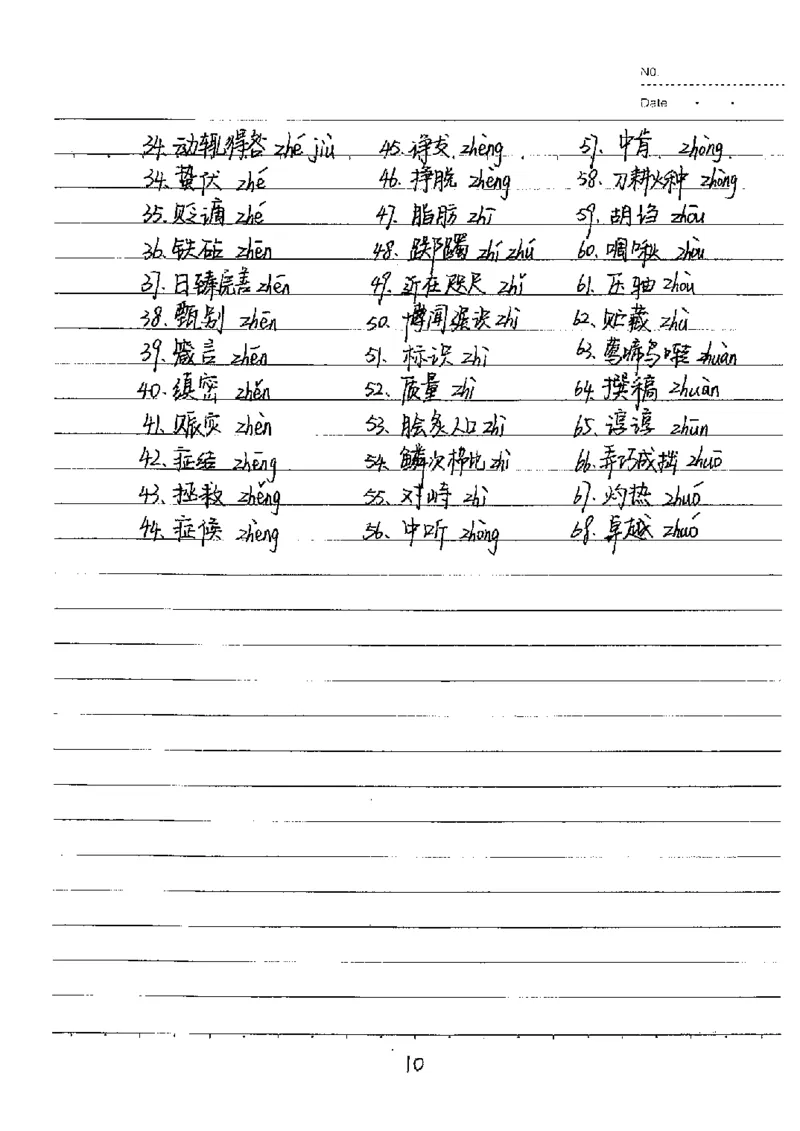 No.
Date
34.动辄得咎 zhé jiù
34.蛰伏 zhé
35.贬谪 zhé
36.铁砧 zhēn
37.日臻完善 zhēn
38.甄别 zhēn
39.箴言 zhēn
40.缜密 zhěn
41.赈灾 zhèn
42.症结 zhēng
43.拯救 zhěng
44.症候 zhèng
45.诤友 zhèng
46.挣脱 zhèng
47.脂肪 zhī
48.踯躅 zhí zhú
49.近在咫尺 zhǐ
50.博闻强识 zhì
51.标识 zhì
52.质量 zhì
53.脍炙人口 zhì
54.鳞次栉比 zhì
55.对峙 zhì
56.中听 zhòng
57.中肯 zhòng
58.刀耕火种 zhòng
59.胡诌 zhōu
60.啁啾 zhōu
61.压轴 zhòu
62.贮藏 zhù
63.莺啼鸟啭 zhuàn
64.撰稿 zhuàn
65.谆谆 zhūn
66.弄巧成拙 zhuō
67.灼热 zhuó
68.卓越 zhuó
10